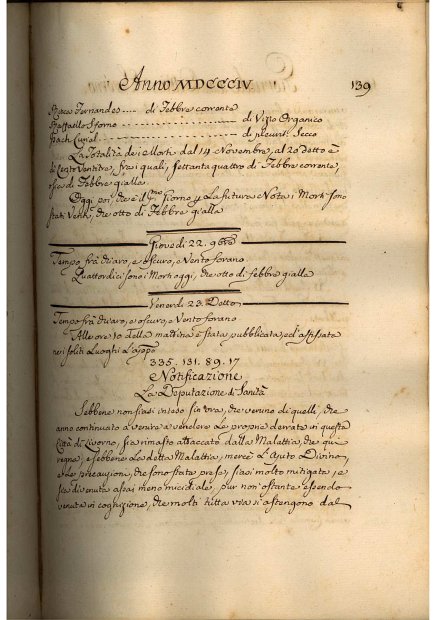 Anno MDCCCIV 139
Isaca Fernandes --- di Febbre corrente
Raffaello Sforno --- di Vizio Organico
Isach Curiel --- di pleurit. Secco
La Totalità dei Morti dal 14 Novembre, al 20 detto è
di Cento Ventitre, frà i quali, settanta quattro di Febbre corrente,
osia di Febbre gialla.
Oggi poi, che è il Giorno La Nota i Morti sono
stati Venti, che otto di Febbre gialla
Giovedì 22. 9bre
Tempo frà chiaro, e oscuro, e Vento forano
Quattordici sono i Morti oggi, che otto di febbre gialla
Venerdì 23. Detto
Tempo frà chiaro, e oscuro, e Vento forano
Alle ore 10 della mattina è stata pubblicata, ed affissata
nei soliti Luoghi La
335. 131. 89. 17
Notificazione
La Deputazione di Sanità
Sebbene non siasi inteso sin'ora, che veruno di quelli, che
anno continuato a venire a vendere Le proprie derrate in questa
Città di Livorno, sia rimasto attaccato dalla Malattia, che quì
regna, e sebbene La detta Malattia, mercè L'Ajuto Divino,
e Le precauzioni, che sono state prese, siasi molto mitigata, e
sia divenuta assai meno micidiale, pur non ostante essendo
venuta in cognizione, che molti tutta via si astengono dal